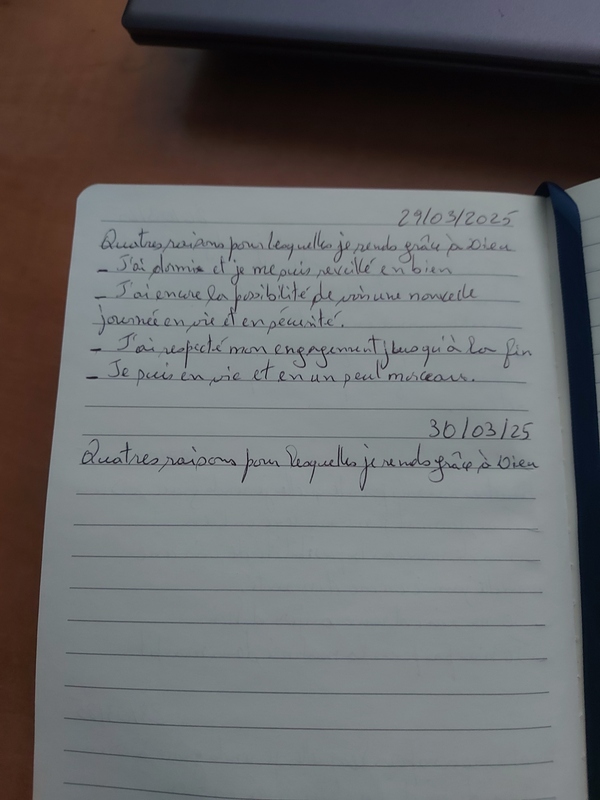 29/03/2025
Quatres raisons pour lesquelles je rends grâce à Dieu
- J'ai dormis et je me suis reveillé en bien
- J'ai encore la possibilité de voir une nouvelle
journée en vie et en sécurité.
- J'ai respecté mon engagement jusqu'à la fin
- Je suis en vie et en un seul morceau.
30/03/25
Quatres raisons pour lesquelles je rends grâce à Dieu